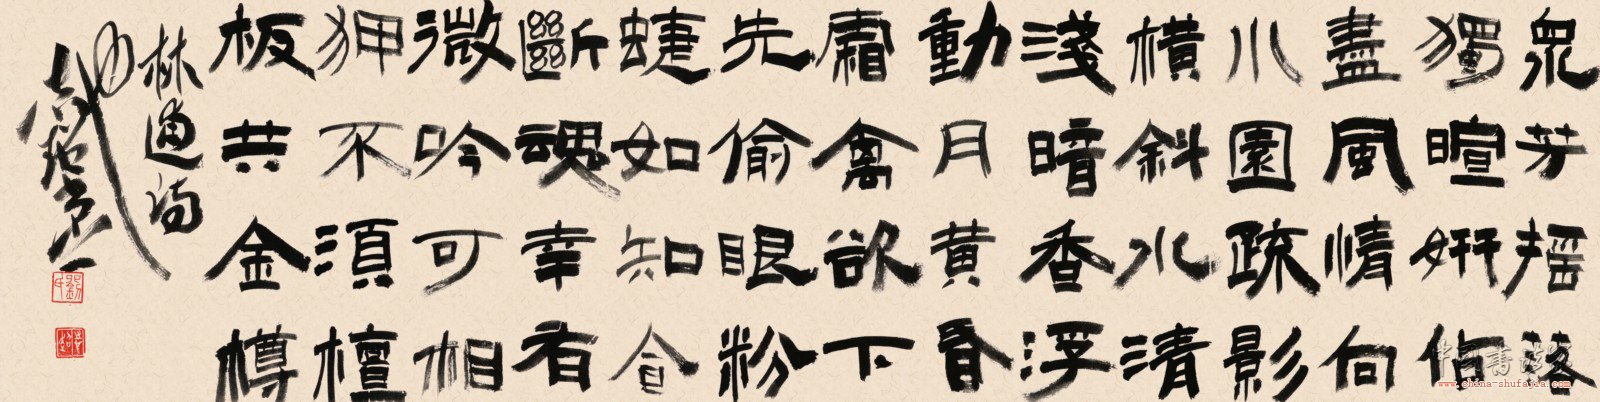 眾芳搖落
獨暄妍佔
盡風情向
小園疏影
橫斜水清
淺暗香浮
動月黃昏
霜禽欲下
先偷眼粉
蜨如知合
斷魂幸有
微吟可相
狎不須檀
板共金樽
林逋詩
www.china-shufajia.com